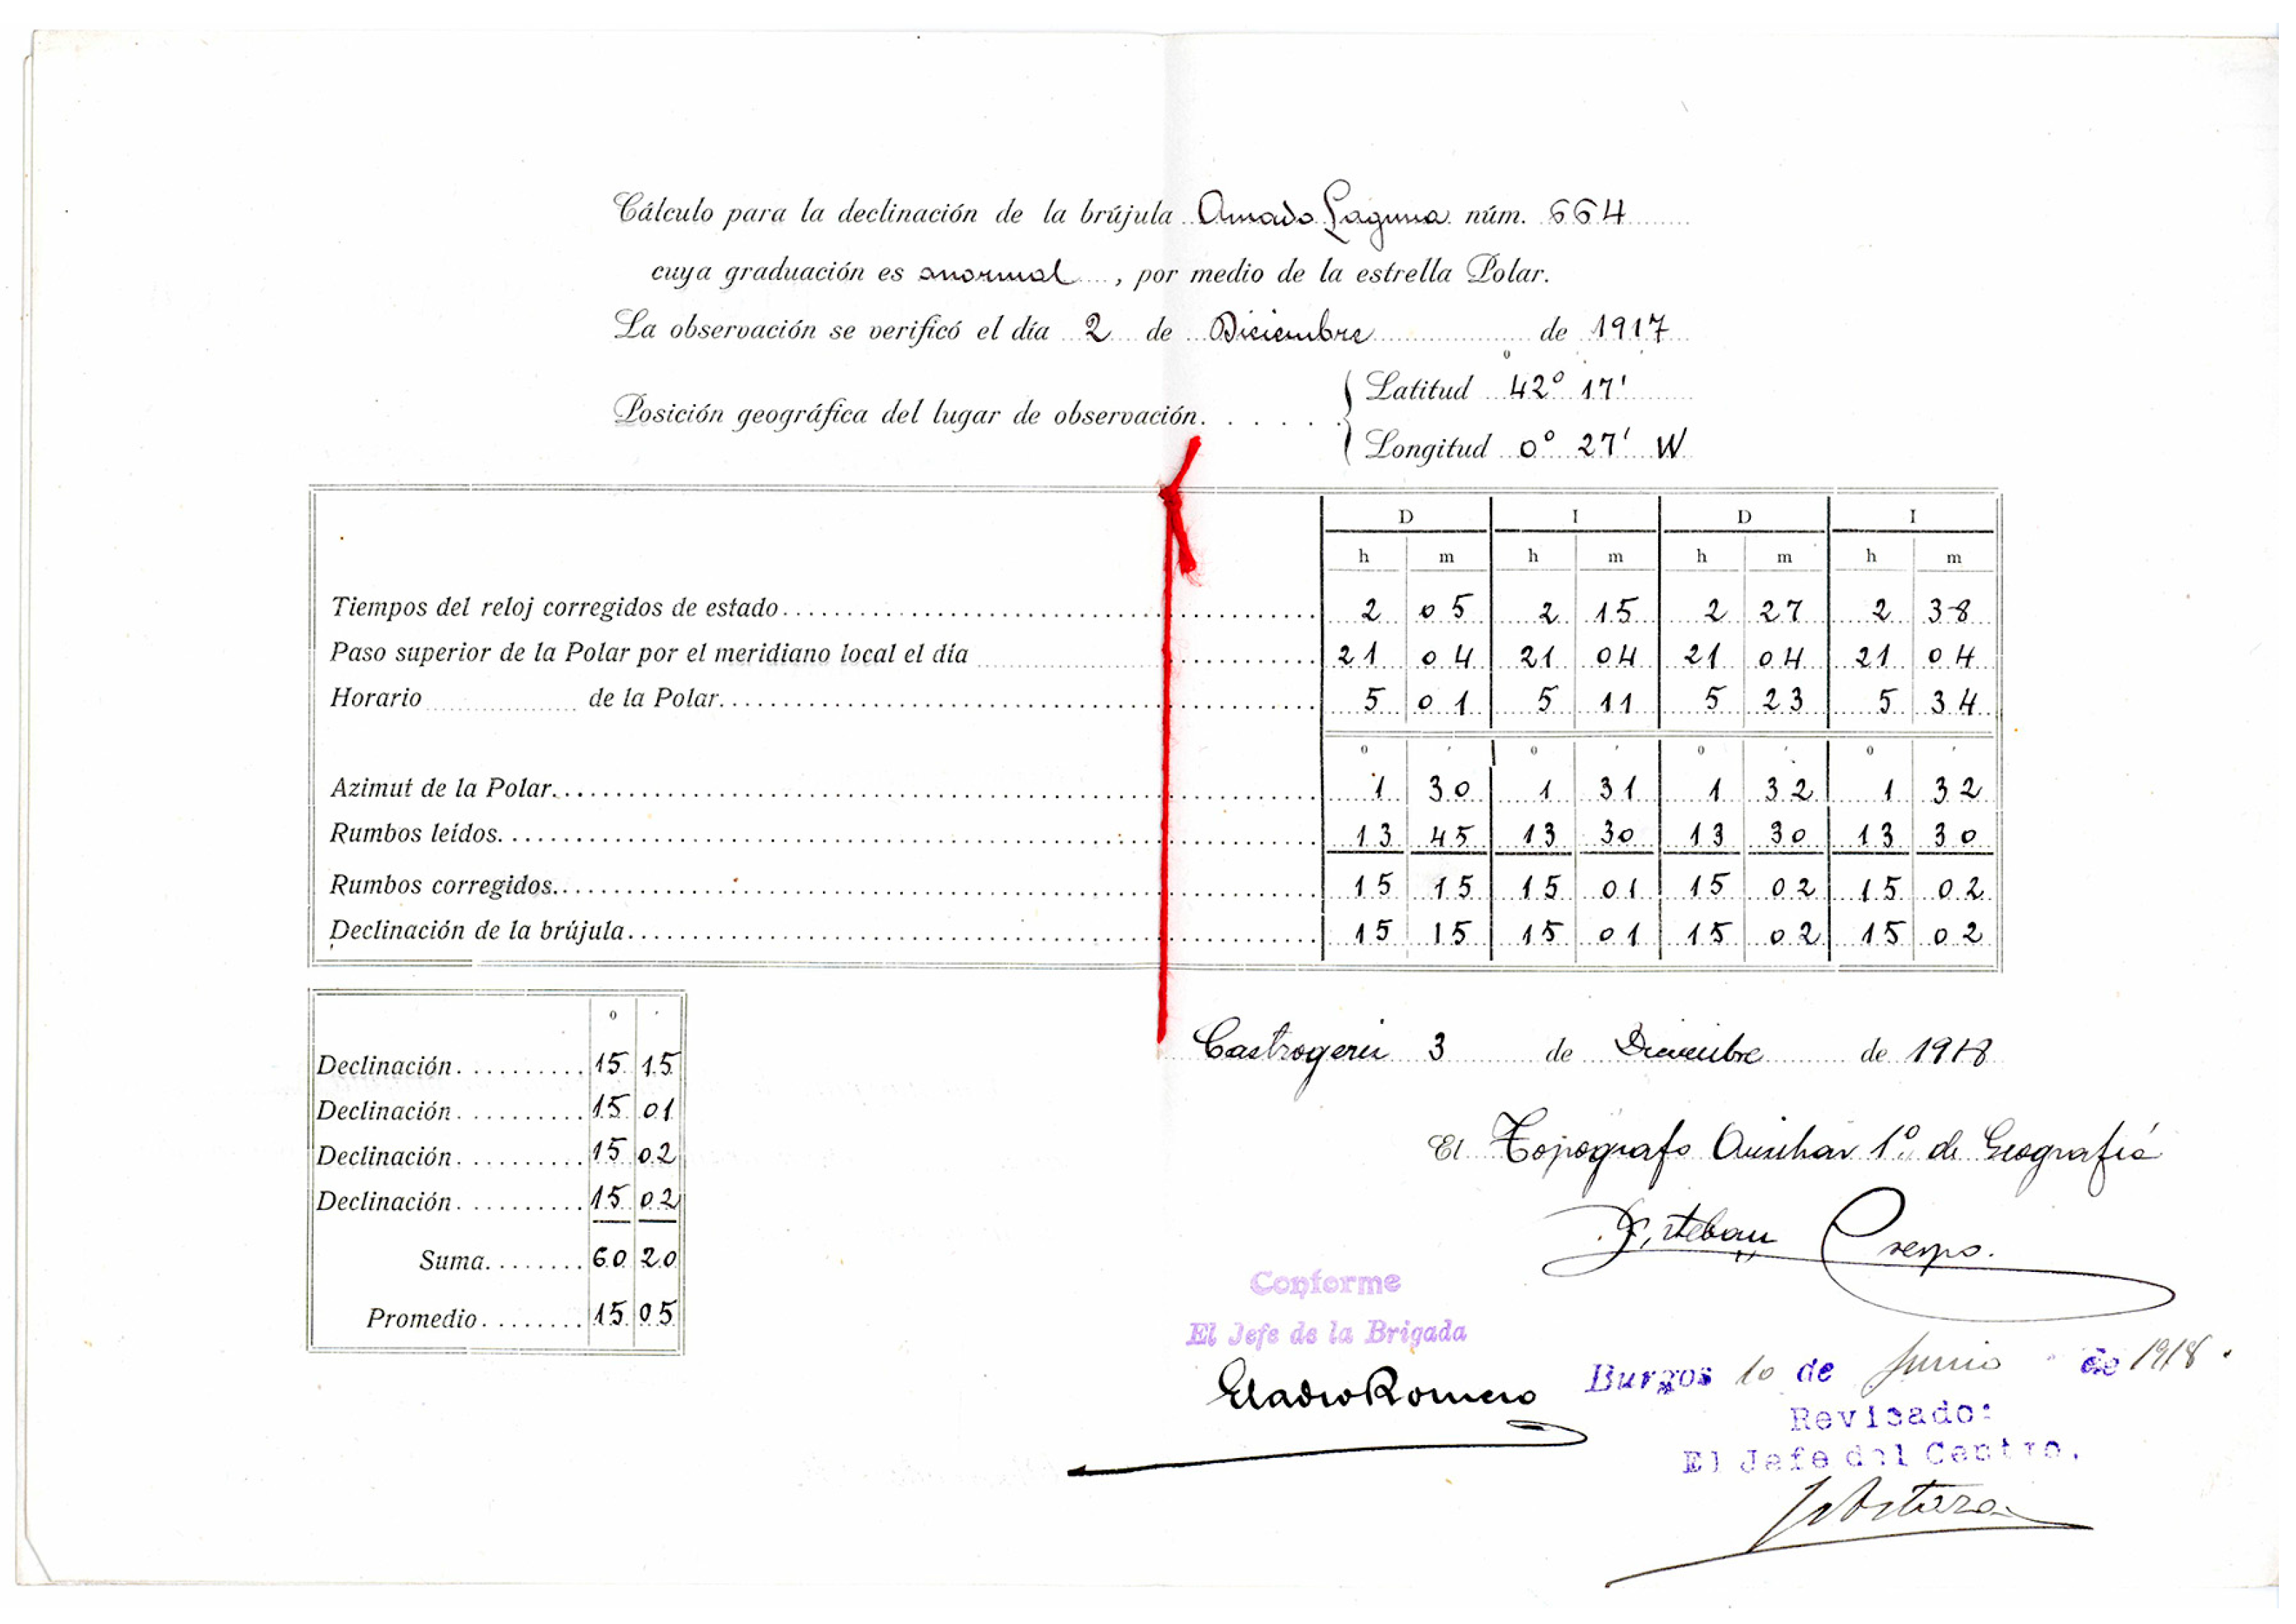 Cálculo para la declinación de la brújula Amado Laguna núm. 664
cuya graduación es anormal, por medio de la estrella Polar.
La observación se verificó el día 2 de Diciembre de 1917
Posición geográfica del lugar de observación......
Latitud 42° 17'
Longitud 0° 27' W
D I D I
h m h m h m h m
Tiempos del reloj corregidos de estado 2 05 2 15 2 27 2 38
Paso superior de la Polar por el meridiano local el día 21 04 21 04 21 04 21 04
Horario de la Polar 5 01 5 11 5 23 5 34
o ' o ' o ' o '
Azimut de la Polar 1 30 1 31 1 32 1 32
Rumbos leídos 13 45 13 30 13 30 13 30
Rumbos corregidos 15 15 15 01 15 02 15 02
Declinación de la brújula 15 15 15 01 15 02 15 02
o '
Declinación 15 15
Declinación 15 01
Declinación 15 02
Declinación 15 02
Suma 60 20
Promedio 15 05
Castrogeriz 3 de Diciembre de 1918
El Topógrafo Auxiliar 1º de Geografía
Esteban Crespo.
Conforme
El Jefe de la Brigada
Eladio Romero
Burgos 10 de Junio de 1918.
Revisado:
El Jefe del Centro.